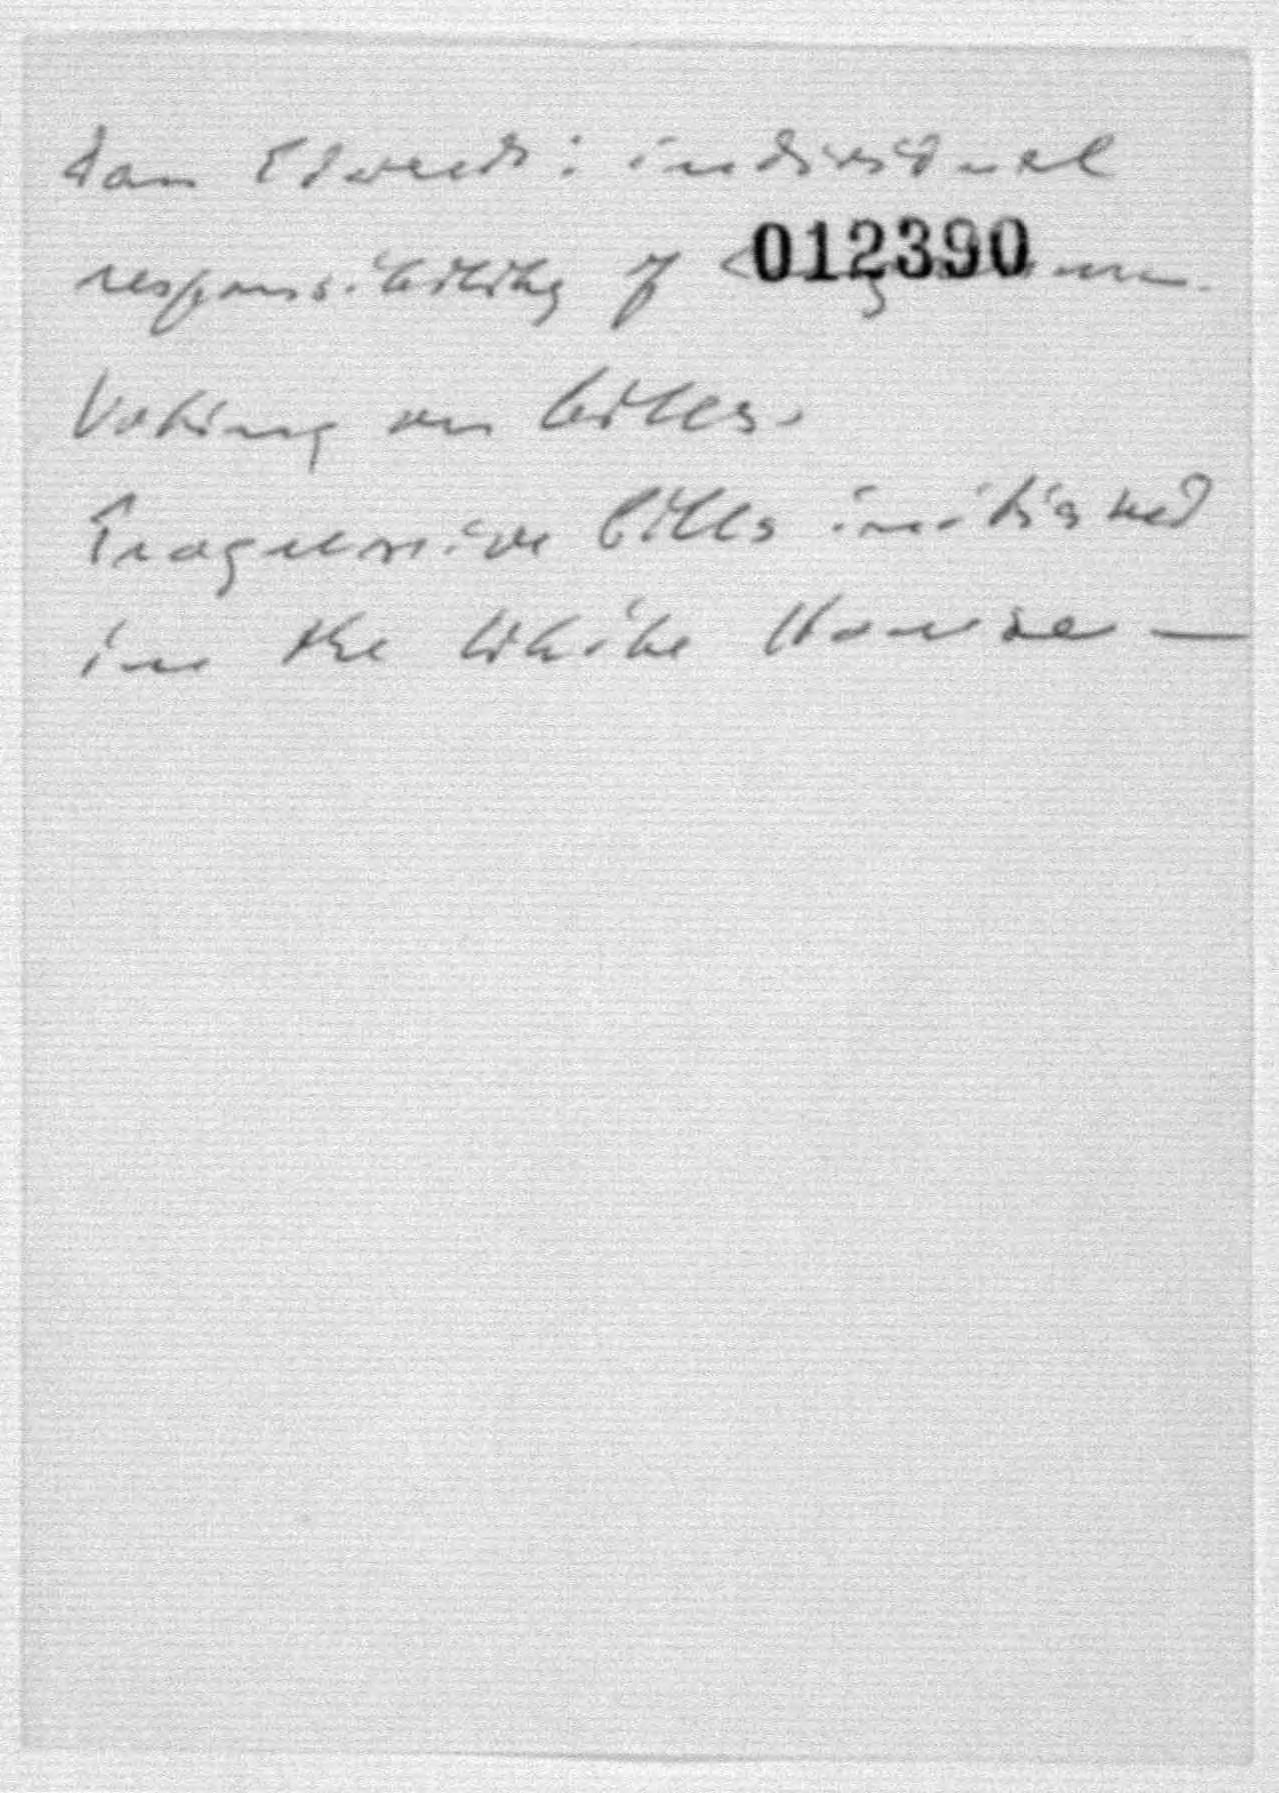 Don Edwards: individual
012390
responsibility of
Voting on bills.
Progressive bills initiated
in the White House —